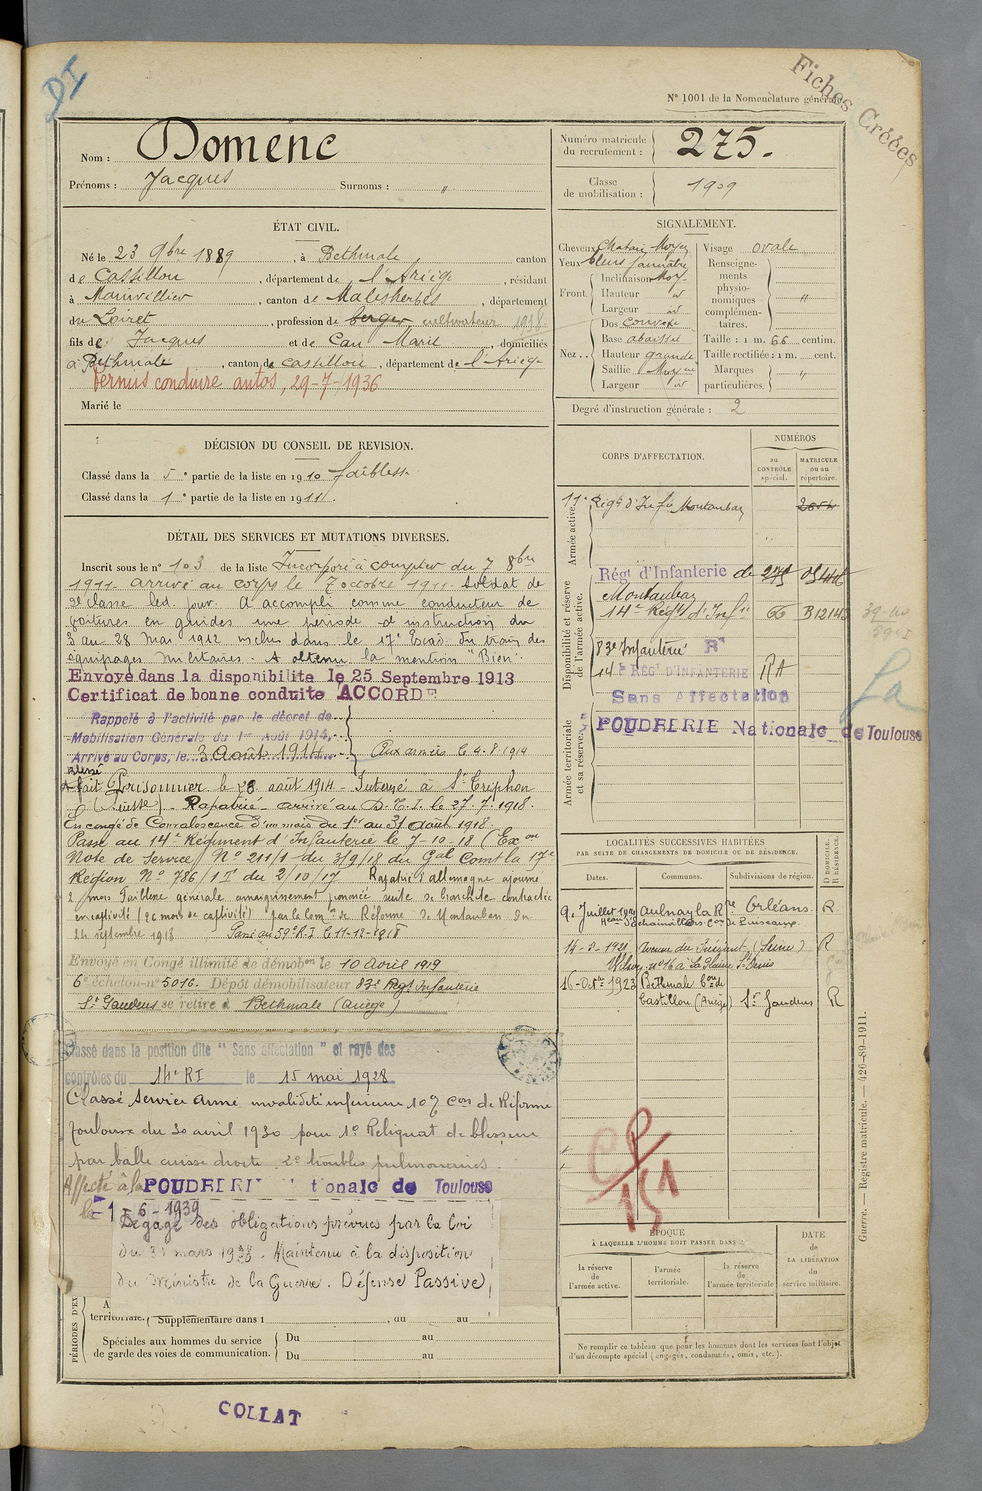 DI
Fiches Créées
N° 1001 de la Nomenclature générale
Nom : Domenc
Prénoms : Jacques Surnoms : "
Numéro matricule du recrutement : 275.
Classe de mobilisation : 1909
ÉTAT CIVIL.
Né le 23 9bre 1889, à Bethmale canton
de Castillon, département de l'Ariège, résidant
à Mainvillier, canton de Malesherbes, département
du Loiret, profession de berger cultivateur 1938
fils de Jacques et de Cau Marie, domiciliés
à Bethmale, canton de Castillon, département de l'Ariège
Permis conduire autos, 29-7-1936
Marié le
SIGNALEMENT.
Cheveux Chatain Moyen
Yeux bleus jaunâtre
Front. Inclinaison Moy.
Hauteur id
Largeur id
Nez.. Dos convexe
Base abaissée
Hauteur grande
Saillie Moyen
Largeur id
Visage ovale
Renseignements physionomiques complémentaires. "
Taille : 1 m. 66 centim.
Taille rectifiée : 1 m. cent.
Marques particulières. "
Degré d'instruction générale : 2
DÉCISION DU CONSEIL DE REVISION.
Classé dans la 5e partie de la liste en 1910 faiblesse
Classé dans la 1e partie de la liste en 1911.
DÉTAIL DES SERVICES ET MUTATIONS DIVERSES.
Inscrit sous le n° 103 de la liste Incorporé à compter du 7 8bre
1911. arrivé au corps le 7 octobre 1911. Soldat de
2e classe led. jour. A accompli comme conducteur de
voitures en guides une période d'instruction du
3 au 28 Mai 1912 inclus dans le 17e Escad. du train des
équipages militaires. A obtenu la mention "Bien".
Envoyé dans la disponibilité le 25 Septembre 1913
Certificat de bonne conduite ACCORDÉ
Rappelé à l'activité par le décret de
Mobilisation Générale du 1er Août 1914,
Arrivé au Corps, le 3 août 1914 Aux armées le 4-8-1914
Blessé
Fait Prisonnier le 28 août 1914 - Interné à St Triphon
(Suisse). Rapatrié arrivé au D.C.I. le 27.7.1918.
En congé de Convalescence d'un mois du 1er au 31 août 1918.
Passé au 14e Régiment d'Infanterie le 7-10-18 (Exon
Note de Service N° 211/1 du 3/9/18 du Gal Comt la 17e
Région N° 786/1I du 2/10/17 Rapatrié d'allemagne ajourné
2 mois Faiblesse générale amaigrissement prononcé suite de bronchite contractée
en captivité (26 mois de captivité) par la Com. de Réforme de Montauban du
24 septembre 1918 Passé au 59e R.I. le 11-12-1918
Envoyé en Congé illimité de démobon le 10 Avril 1919
6e échelon n° 5016. Dépôt démobilisateur 83e Régt Infanterie
St Gaudens se retire à Bethmale (Ariège)
Classé dans la position dite " Sans affectation " et rayé des
contrôles du 14e RI le 15 mai 1928
Classé Service Armé invalidité inférieure 10% Con de Réforme
Toulouse du 30 avril 1930 pour 1° Reliquat de blessure
par balle cuisse droite. 2° troubles pulmonaires.
Affecté à la POUDRERIE Nationale de Toulouse
le 1-6-1939
Dégagé des obligations prévues par la loi
du 31 mars 1928. Maintenu à la disposition
du Ministre de la Guerre. Défense Passive
PÉRIODES D'EX
territoriale. Supplémentaire dans l , du au
Spéciales aux hommes du service de garde des voies de communication. Du au
Du au
CORPS D'AFFECTATION.
NUMÉROS
au CONTRÔLE spécial.
MATRICULE ou au répertoire.
Armée active.
11e Régt d'Infie Montauban
Disponibilité et réserve de l'armée active.
Régt d'Infanterie de
Montauban
14e Régt d'Infie B12143
83e Infanterie R
14e RÉGt D'INFANTERIE RA
Sans Affectation
Armée territoriale et sa réserve.
POUDRERIE Nationale de Toulouse
La
LOCALITÉS SUCCESSIVES HABITÉES
PAR SUITE DE CHANGEMENTS DE DOMICILE OU DE RÉSIDENCE.
Dates. Communes. Subdivisions de région. D DOMICILE. R RÉSIDENCE.
Aulnay la Rre Orléans. R.
14-3-1921 Avenue du Président (Seine) R
Wilson n° 16 à La Plaine St Denis
16-Octe 1923 Bethmale Con de
Castillon (Ariège) St Gaudens R
CP
151
ÉPOQUE
À LAQUELLE L'HOMME DOIT PASSER DANS :
la réserve de l'armée active.
l'armée territoriale.
la réserve de l'armée territoriale
DATE de LA LIBÉRATION du service militaire.
Ne remplir ce tableau que pour les hommes dont les services font l'objet
d'un décompte spécial (engagés, condamnés, omis, etc.).
Guerre. — Registre matricule. — 426-89-1911.
COLLAT